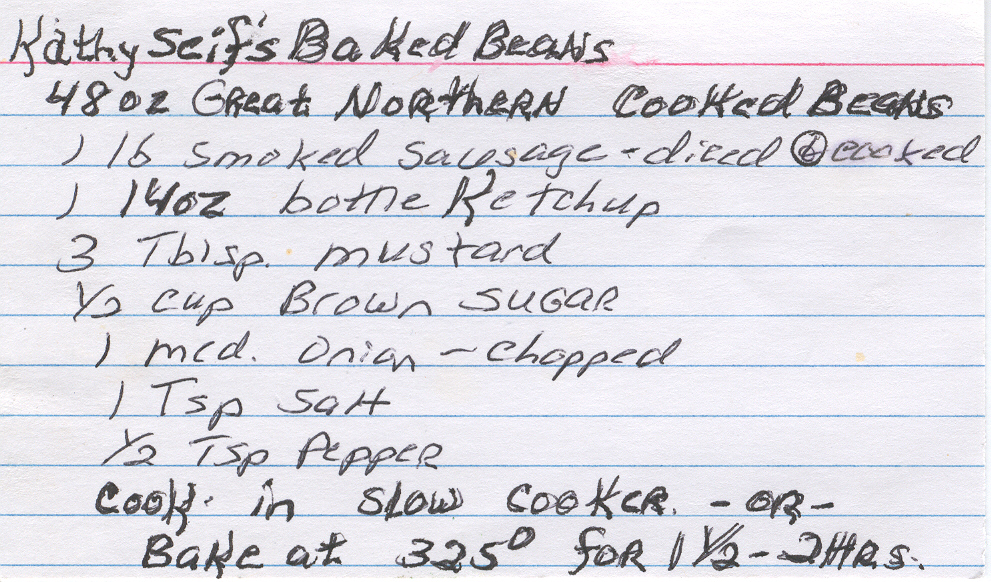 Kathy Seif's Baked Beans
48 oz Great Northern Cooked Beans
1 lb Smoked Sausage - diced & cooked
1 14oz bottle Ketchup
3 Tblsp. mustard
1/2 cup Brown SUGAR
1 med. Onion - Chopped
1 Tsp Salt
1/2 Tsp Pepper
Cook in Slow Cooker. - OR -
Bake at 325° for 1 1/2 - 2 HRS.